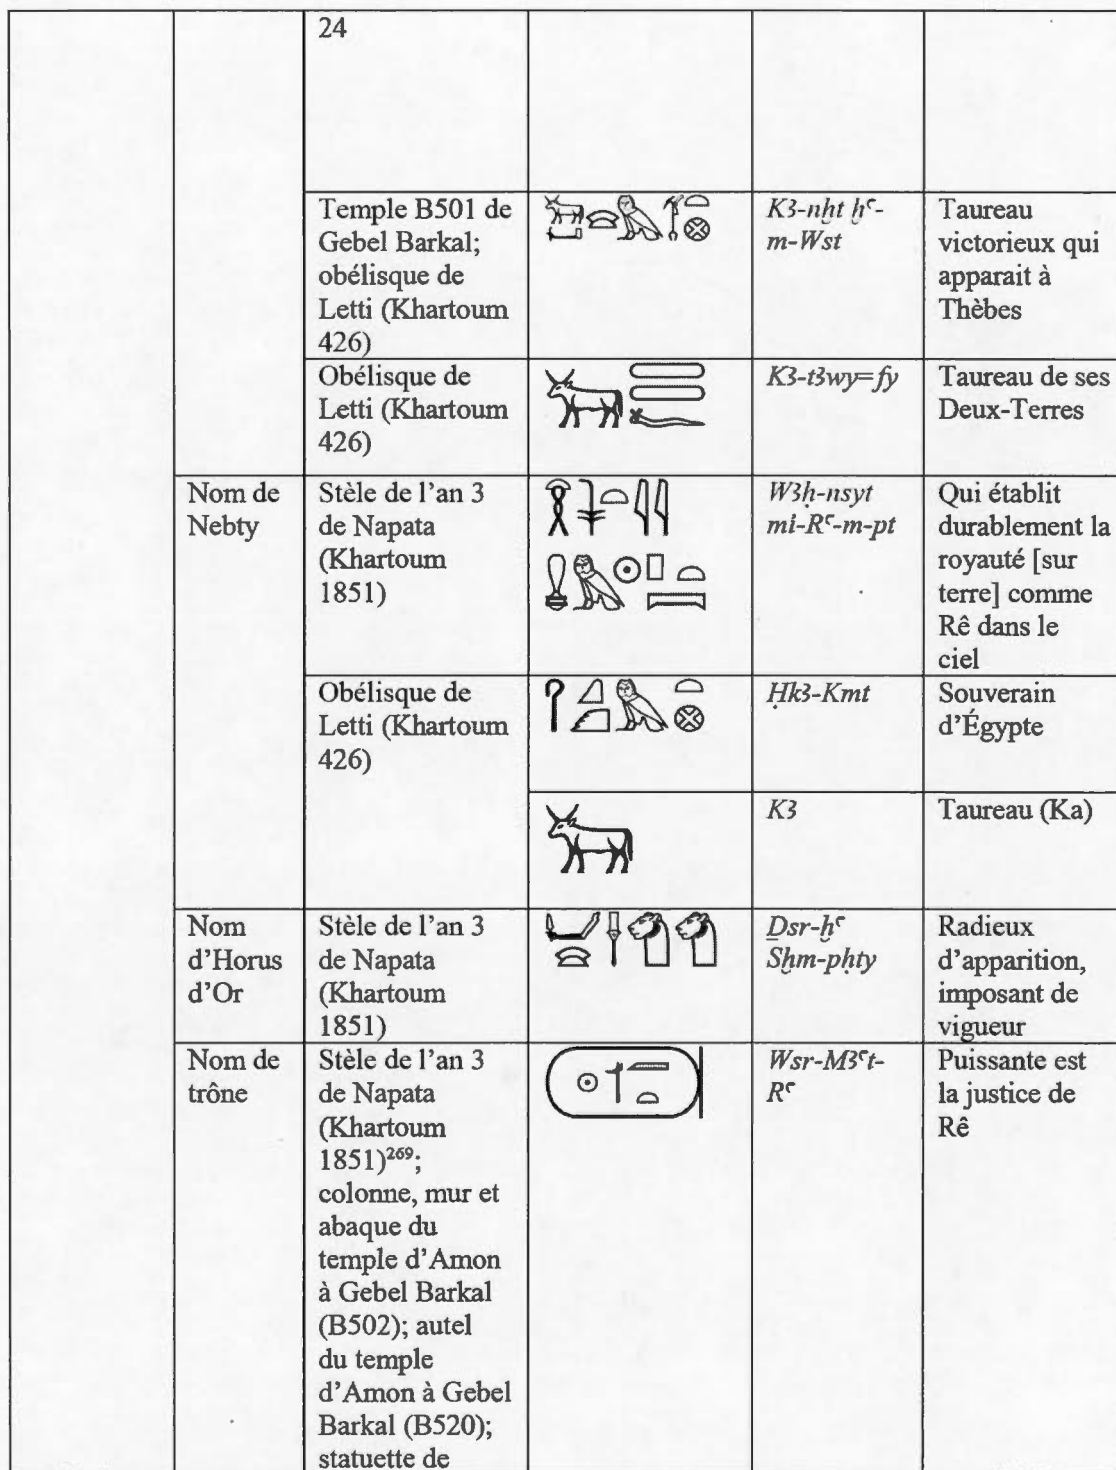 24
Temple B501 de
Gebel Barkal;
obélisque de
Letti (Khartoum
426)
K3-nḫt ḫꜥ-
m-Wst
Taureau
victorieux qui
apparait à
Thèbes
Obélisque de
Letti (Khartoum
426)
K3-t3wy=fy
Taureau de ses
Deux-Terres
Nom de
Nebty
Stèle de l'an 3
de Napata
(Khartoum
1851)
W3ḥ-nsyt
mi-Rꜥ-m-pt
Qui établit
durablement la
royauté [sur
terre] comme
Rê dans le
ciel
Obélisque de
Letti (Khartoum
426)
Ḥk3-Kmt
Souverain
d'Égypte
K3
Taureau (Ka)
Nom
d'Horus
d'Or
Stèle de l'an 3
de Napata
(Khartoum
1851)
Ḏsr-ḫꜥ
Sḫm-pḥty
Radieux
d'apparition,
imposant de
vigueur
Nom de
trône
Stèle de l'an 3
de Napata
(Khartoum
1851)²⁶⁹;
colonne, mur et
abaque du
temple d'Amon
à Gebel Barkal
(B502); autel
du temple
d'Amon à Gebel
Barkal (B520);
statuette de
Wsr-M3ꜥt-
Rꜥ
Puissante est
la justice de
Rê